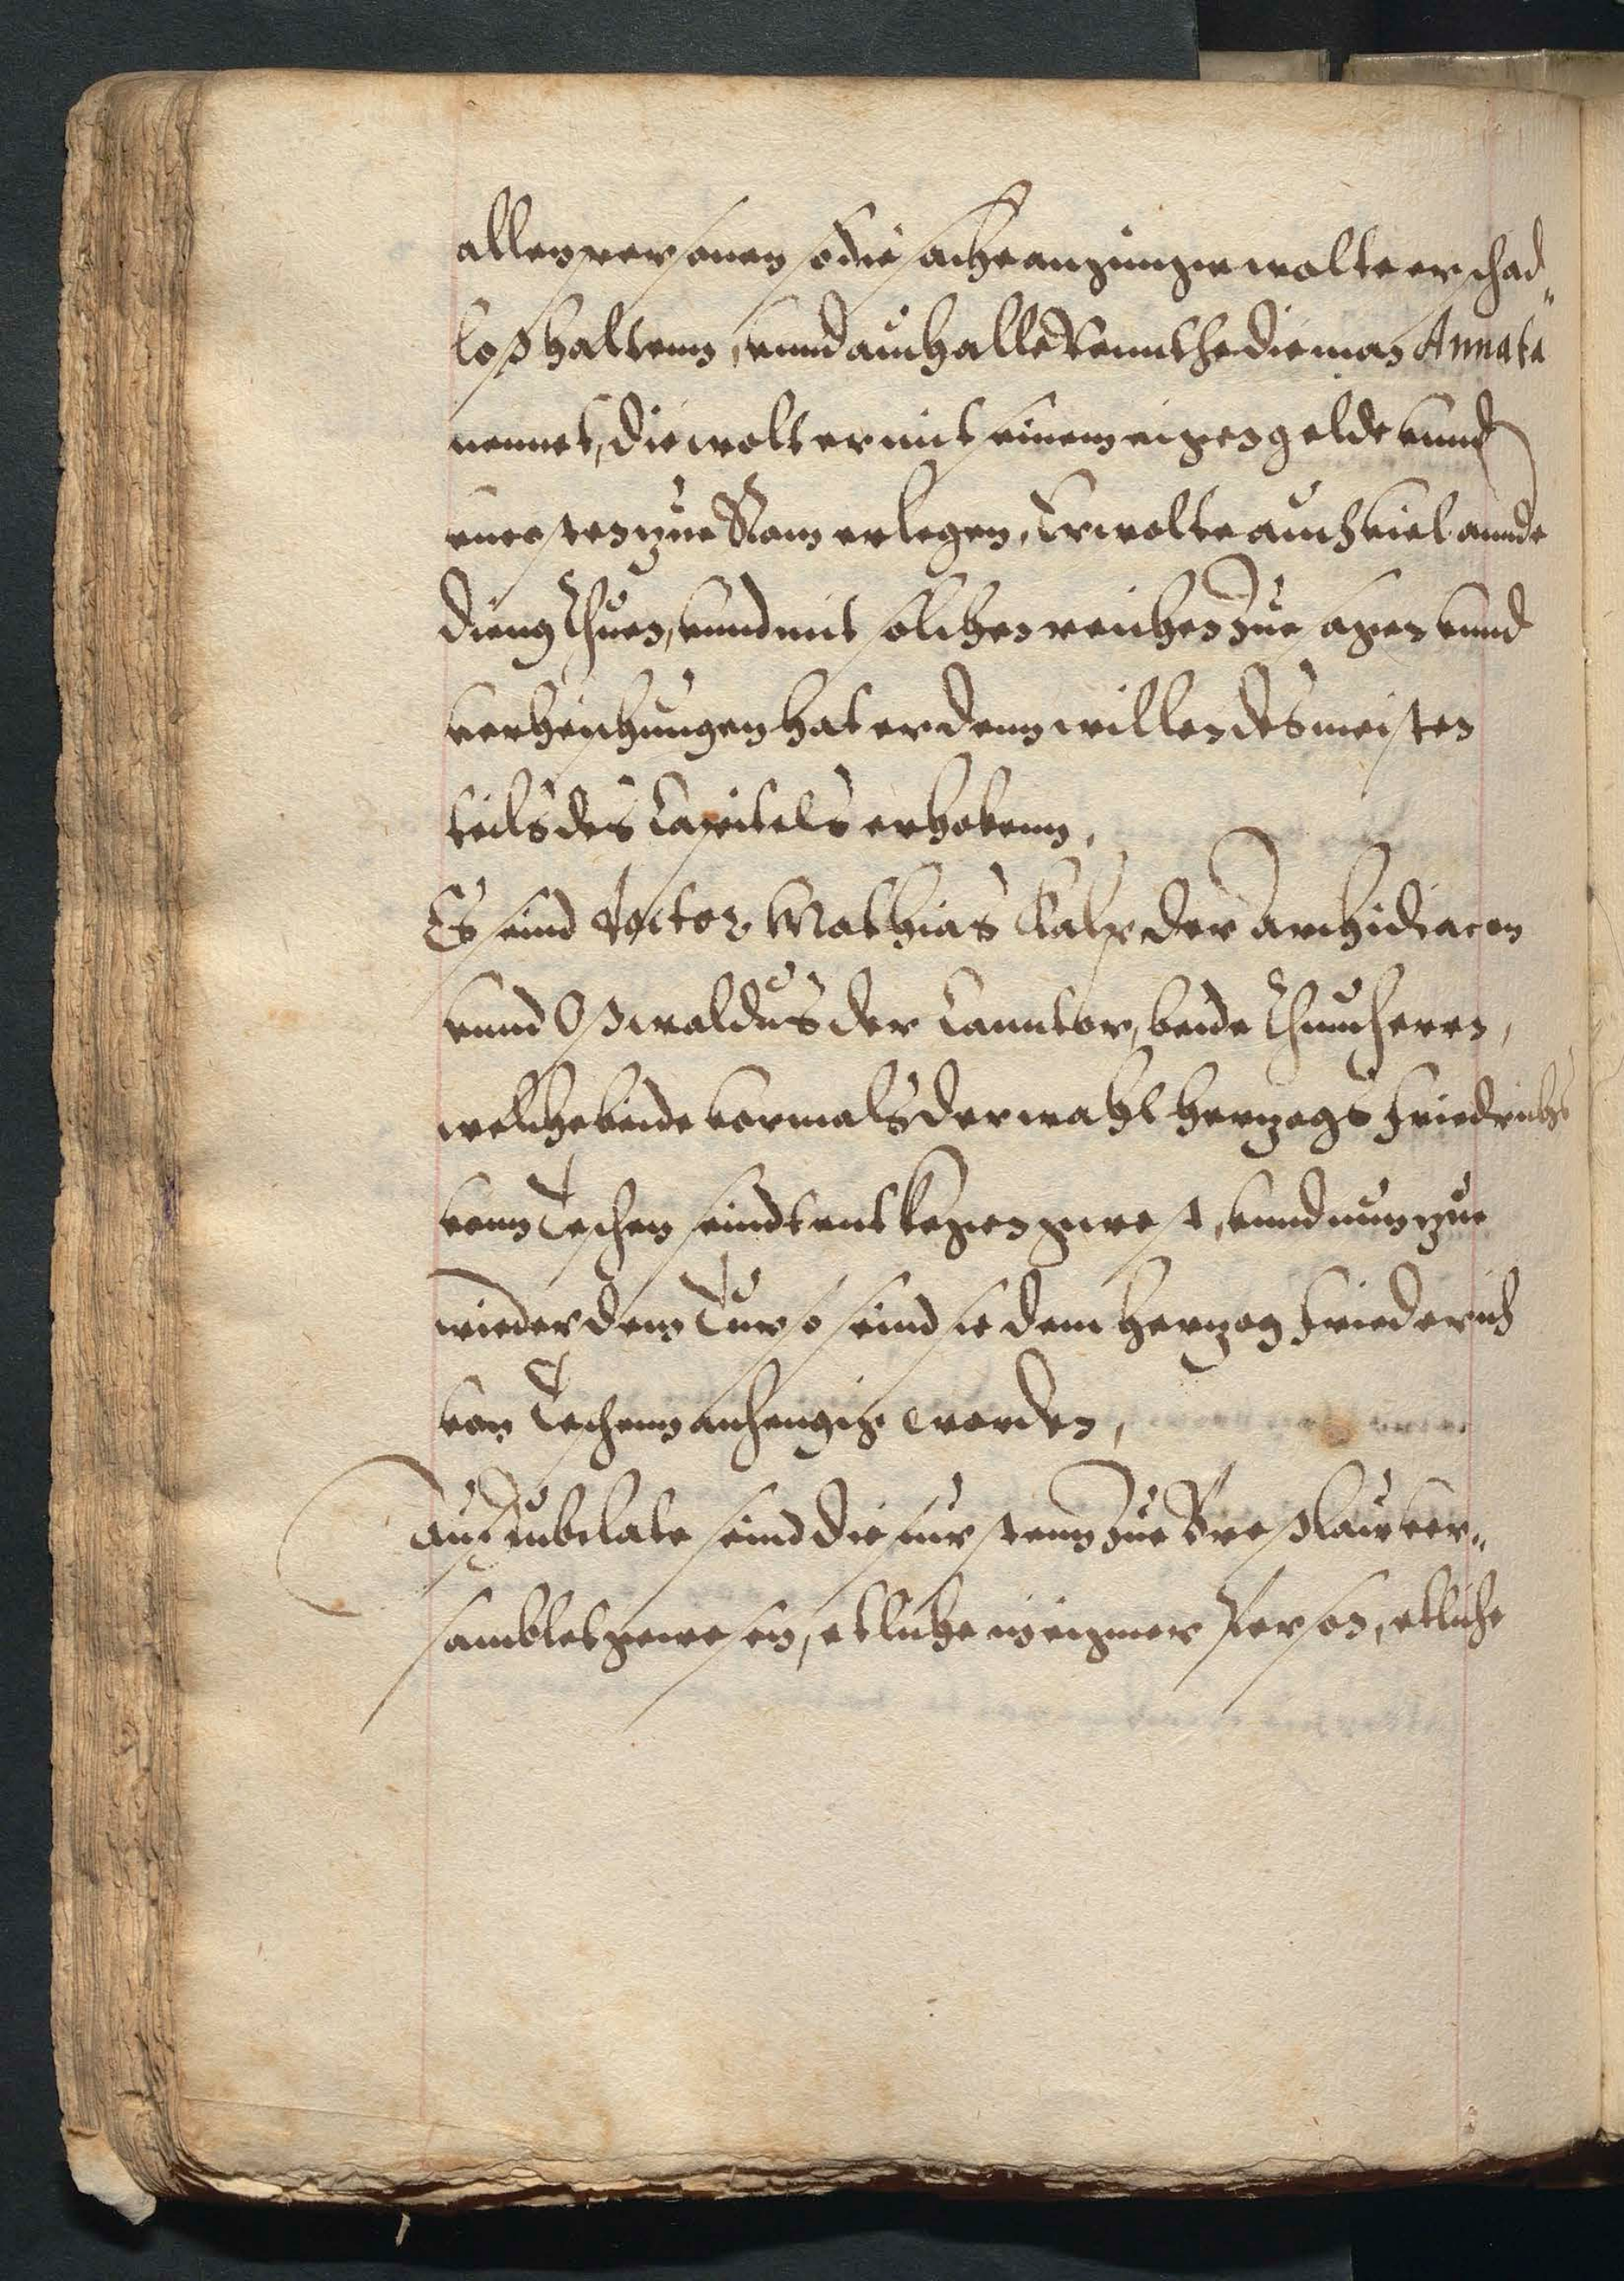 allen personen so die sache anginge wolte er schad„
loß haltenn, vnnd auch alle Rennthe die man Annata
nennet, die wolt er mit seinem eigen gelde vnnd
vncosten zue Rom erlegen, Er wolte auch viel annde
dieng thuen, vnnd mit solchen reichen zuesagen vnnd
verheischungen hat er denn willen des meisten
teils des Capitels erhobenn.
Es seind Doctor Mathias Kalp der Archidiacon
vnnd Oswaldus der Canntor, beide Thumherrn,
welche beide vormals der wahl Hertzogs Friedrichs
vonn Teschen seindt entkegen gwest, vnnd nun zue
wieder dem Turso seind sie dem Hertzog Friederich
von Teschenn anhengig worden,
Auf Jubilate seind die furstenn zue Breßlau ver„
samblet gewesen, etliche in eigner Person, etliche